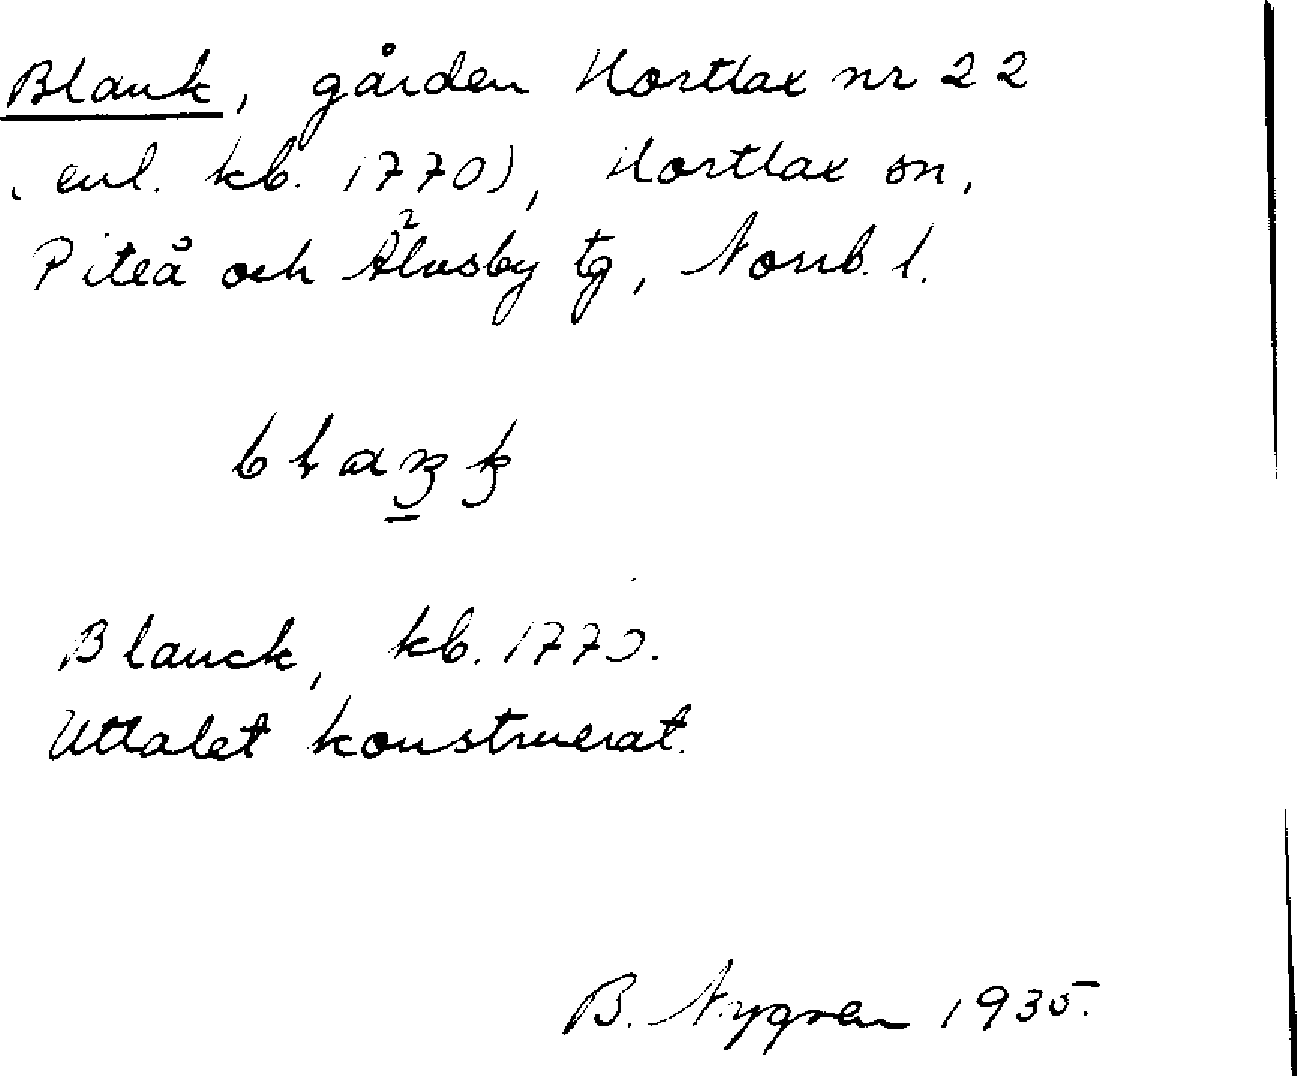 Blank, gården Hortlax nr 22
(enl. kb. 1770), Hortlax sn,
Piteå och Älvsby tg, Norrb. l.
blaŋk
Blanck, kb. 1770.
Uttalet konstruerat.
B. Nygren 1935.